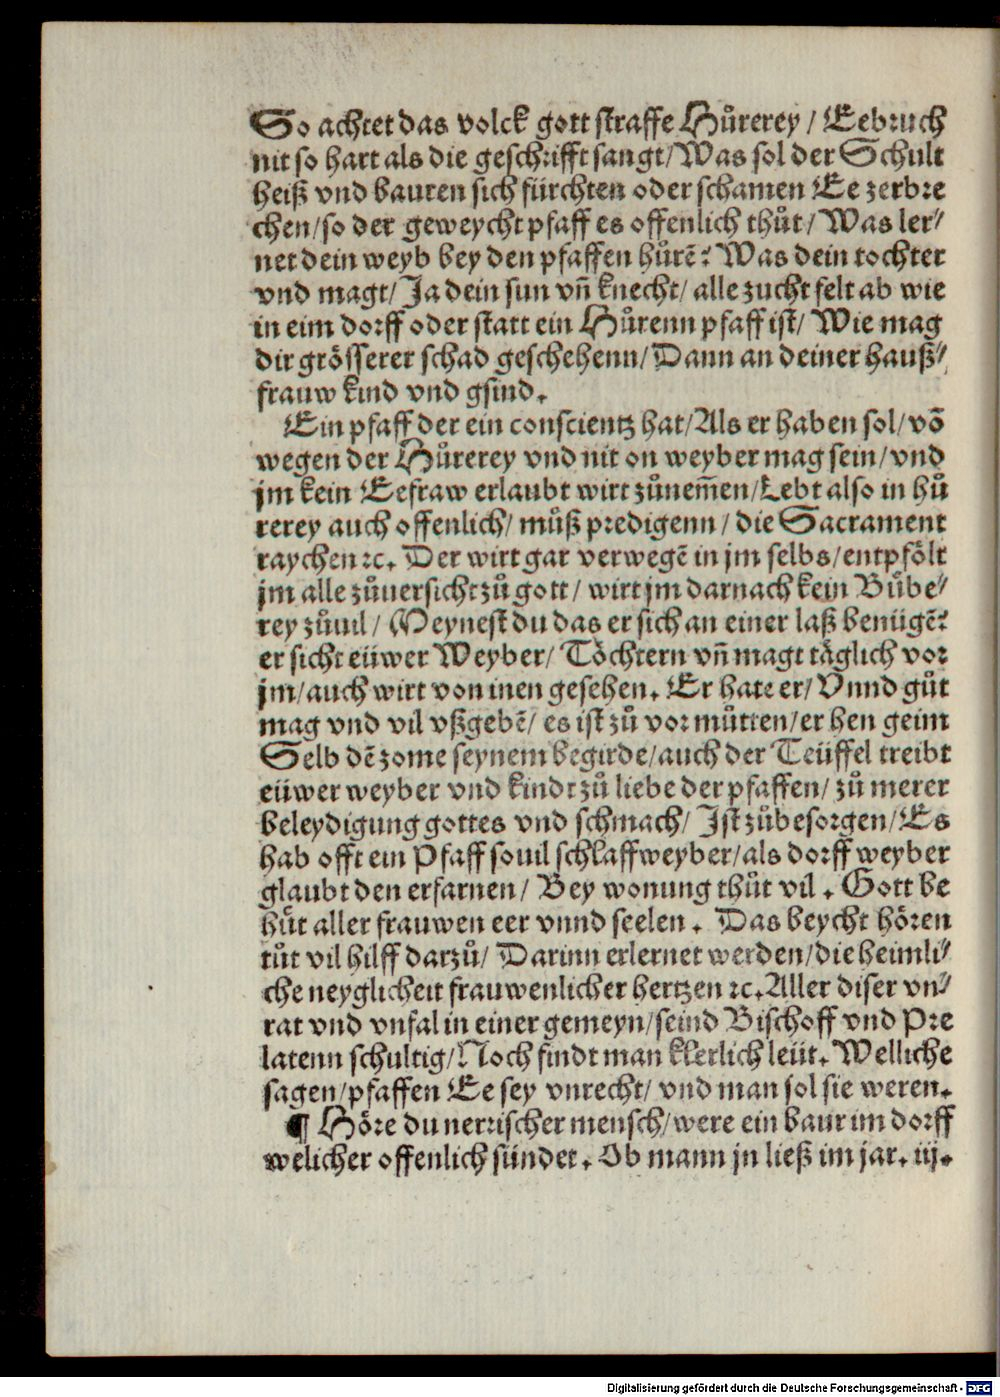 So achtet das volck gott straffe Hůrerey / Eebruch
nit so hart als die geschrifft sangt/Was sol der Schult
heiß vnd bauren sich fürchten oder schamen Ee zerbre
chen/so der geweycht pfaff es offenlich thůt/Was ler⸗
net dein weyb bey den pfaffen hůrẽ? Was dein tochter
vnd magt/Ja dein sun vñ knecht/alle zucht felt ab wie
in eim dorff oder statt ein Hůrenn pfaff ist/Wie mag
dir grösserer schad geschehenn/Dann an deiner hauß⸗
frauw kind vnd gsind.
Ein pfaff der ein conscientz hat/Als er haben sol/võ
wegen der Hůrerey vnd nit on weyber mag sein/vnd
jm kein Eefraw erlaubt wirt zůnem̃en/Lebt also in hů
rerey auch offenlich/můß predigenn/die Sacrament
raychen ꝛc. Der wirt gar verwegẽ in jm selbs/entpfölt
jm alle zůuersicht zů gott/wirt jm darnach kein Bůbe⸗
rey zůuil/Meynest du das er sich an einer laß benügẽ?
er sicht eüwer Weyber/Töchtern vñ magt täglich vor
jm/auch wirt von inen gesehen. Er hate er/Vnnd gůt
mag vnd vil vßgebẽ/es ist zů vor můtten/er hen geim
Selb dẽ zome seynem begirde/auch der Teüffel treibt
eüwer weyber vnd kindt zů liebe der pfaffen/zů merer
beleydigung gottes vnd schmach/Ist zůbesorgen/Es
hab offt ein Pfaff souil schlaffweyber/als dorff weyber
glaubt den erfarnen/Bey wonung thůt vil. Gott be
hůt aller frauwen eer vnnd seelen. Das beycht hören
tůt vil hilff darzů/Darinn erlernet werden/die heimli⸗
che neyglicheit frauwenlicher hertzen ꝛc. Aller diser vn⸗
rat vnd vnfal in einer gemeyn/seind Bischoff vnd Pre
latenn schultig/Noch findt man klerlich leüt. Welliche
sagen/pfaffen Ee sey vnrecht/vnd man sol sie weren.
¶ Höre du nerrischer mensch/were ein baur im dorff
welicher offenlich sündet. Ob mann jn ließ im jar. iij.
Digitalisierung gefördert durch die Deutsche Forschungsgemeinschaft - DFG